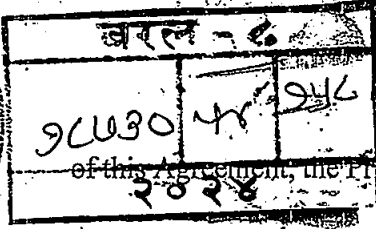 बरल - ८
१८७३० ५४ १५८
of this Agreement, the
२०२४